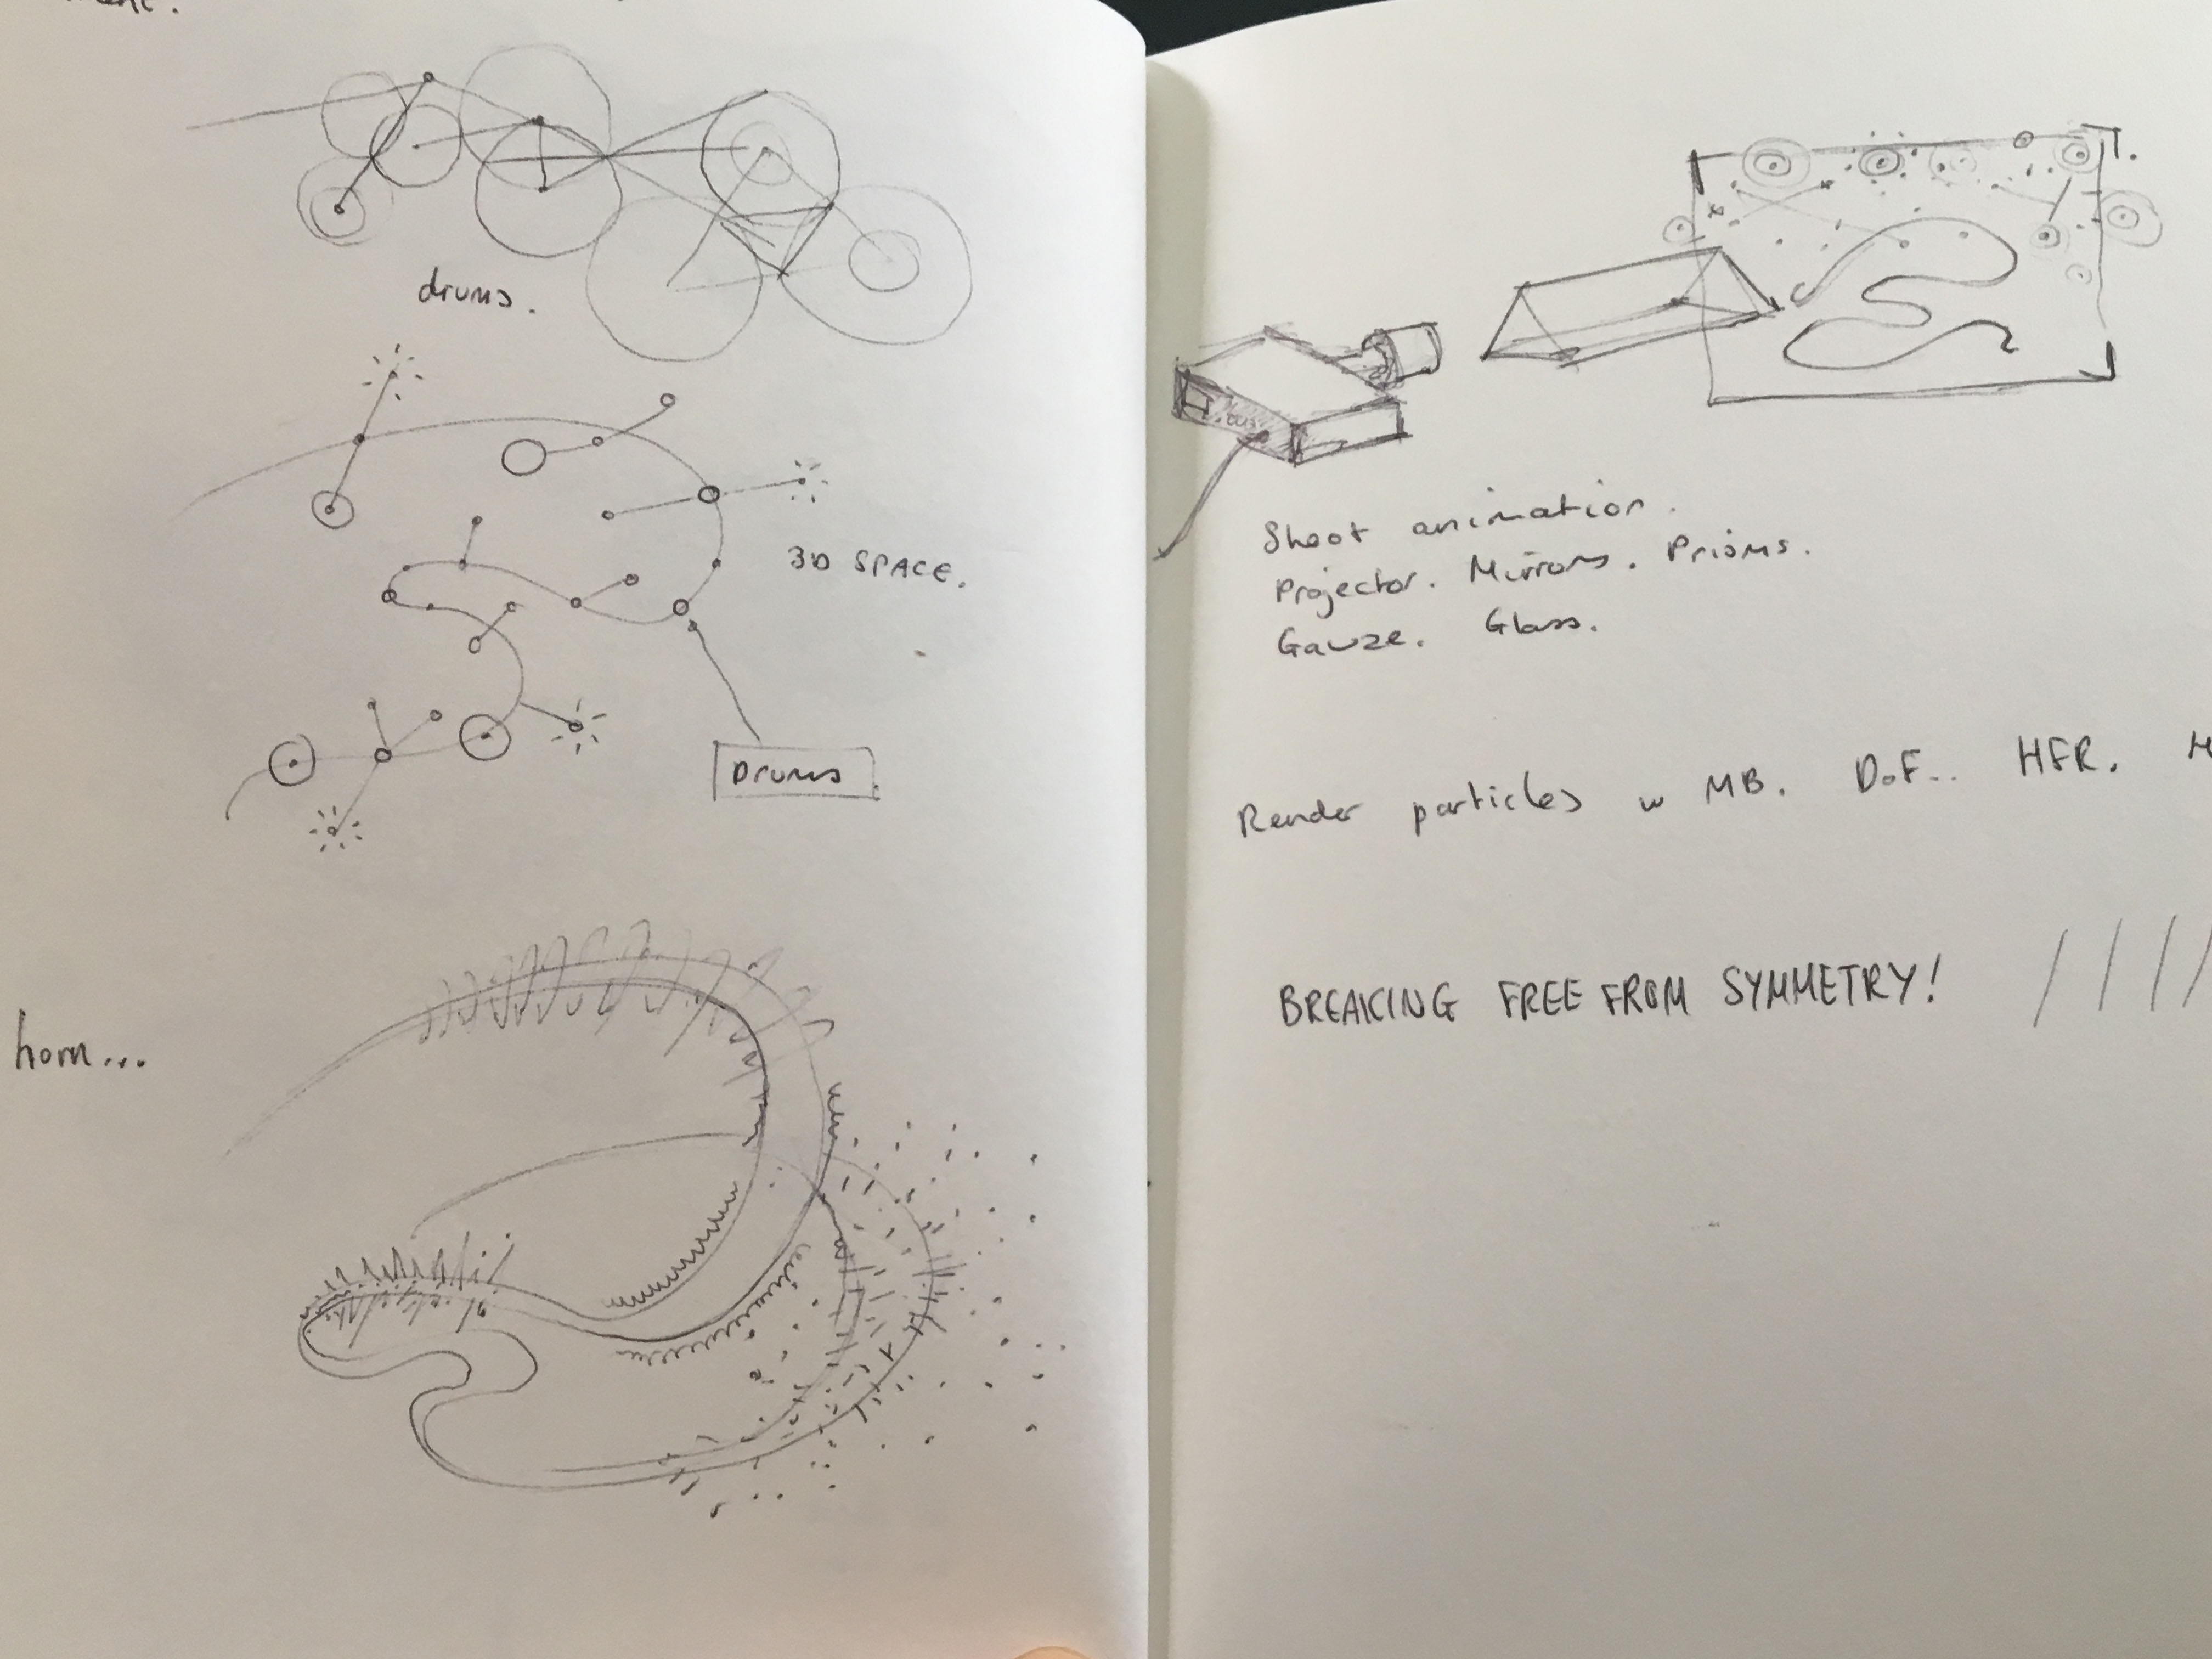 drums.
3D SPACE.
Drums
horn...
Shoot animation.
Projector. Mirrors. Prisms.
Gauze. Glass.
Render particles w MB. DoF.. HFR.
BREAKING FREE FROM SYMMETRY!